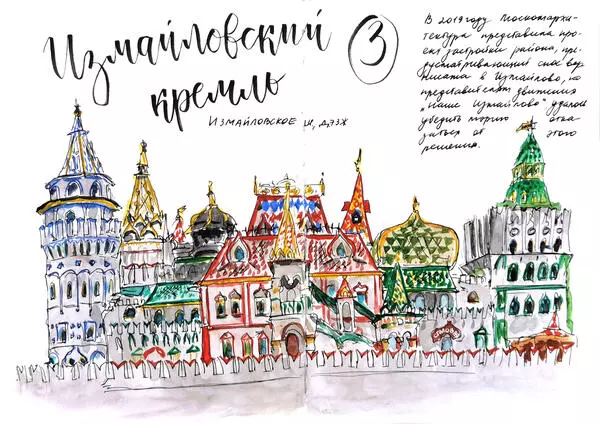 Измайловский
кремль
3
Измайловское ш, д.73ж
В 2019 году Москомархи-
тектура представила про-
ект застройки района, пре-
дусматривающий снос вер-
нисажа в Измайлово, но
представителям движения
"Наше Измайлово" удалось
убедить мэрию отка
заться от этого
решения.